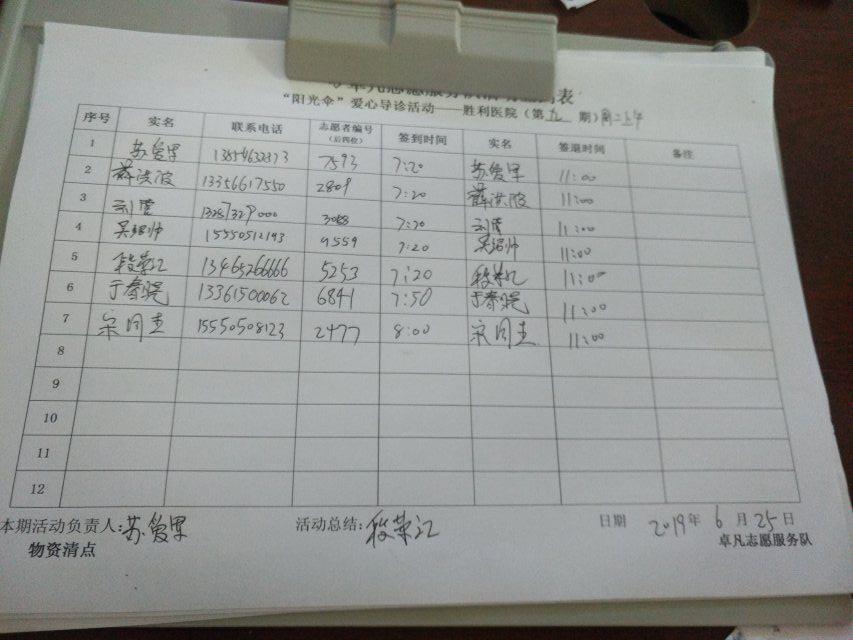 卓凡志愿服务队活动签到表
“阳光伞”爱心导诊活动——胜利医院（第九期）周二上午
序号 实名 联系电话 志愿者编号（后四位） 签到时间 实名 签退时间 备注
1 苏爱军 13554632373 7593 7:20 苏爱军 11:00
2 薛洪波 13356617550 2809 7:20 薛洪波 11:00
3 7:20 11:00
4 吴绍帅 15550512193 9559 7:20 吴绍帅 11:00
5 段荣江 13465266666 5253 7:20 段荣江 11:00
6 于春晓 13361500062 6841 7:50 于春晓 11:00
7 15550508123 2477 8:00 11:00
8
9
10
11
12
本期活动负责人:苏爱军 活动总结:段荣江 日期 2019年6月25日
物资清点 卓凡志愿服务队